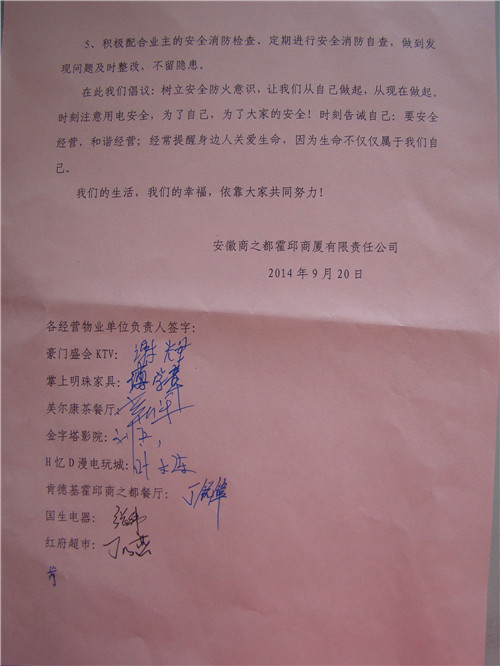 5、积极配合业主的安全消防检查、定期进行安全消防自查，做到发
现问题及时整改、不留隐患。
在此我们倡议：树立安全防火意识，让我们从自己做起，从现在做起。
时刻注意用电安全，为了自己，为了大家的安全！时刻告诫自己：要安全
经营，和谐经营；经常提醒身边人关爱生命，因为生命不仅仅属于我们自
己。
我们的生活，我们的幸福，依靠大家共同努力！
安徽商之都霍邱商厦有限责任公司
2014年9月20日
各经营物业单位负责人签字：
豪门盛会KTV：谢
掌上明珠家具：
美尔康茶餐厅：
金字塔影院：刘
H忆D漫电玩城：叶
肯德基霍邱商之都餐厅：丁
国生电器：张伟
红府超市：丁